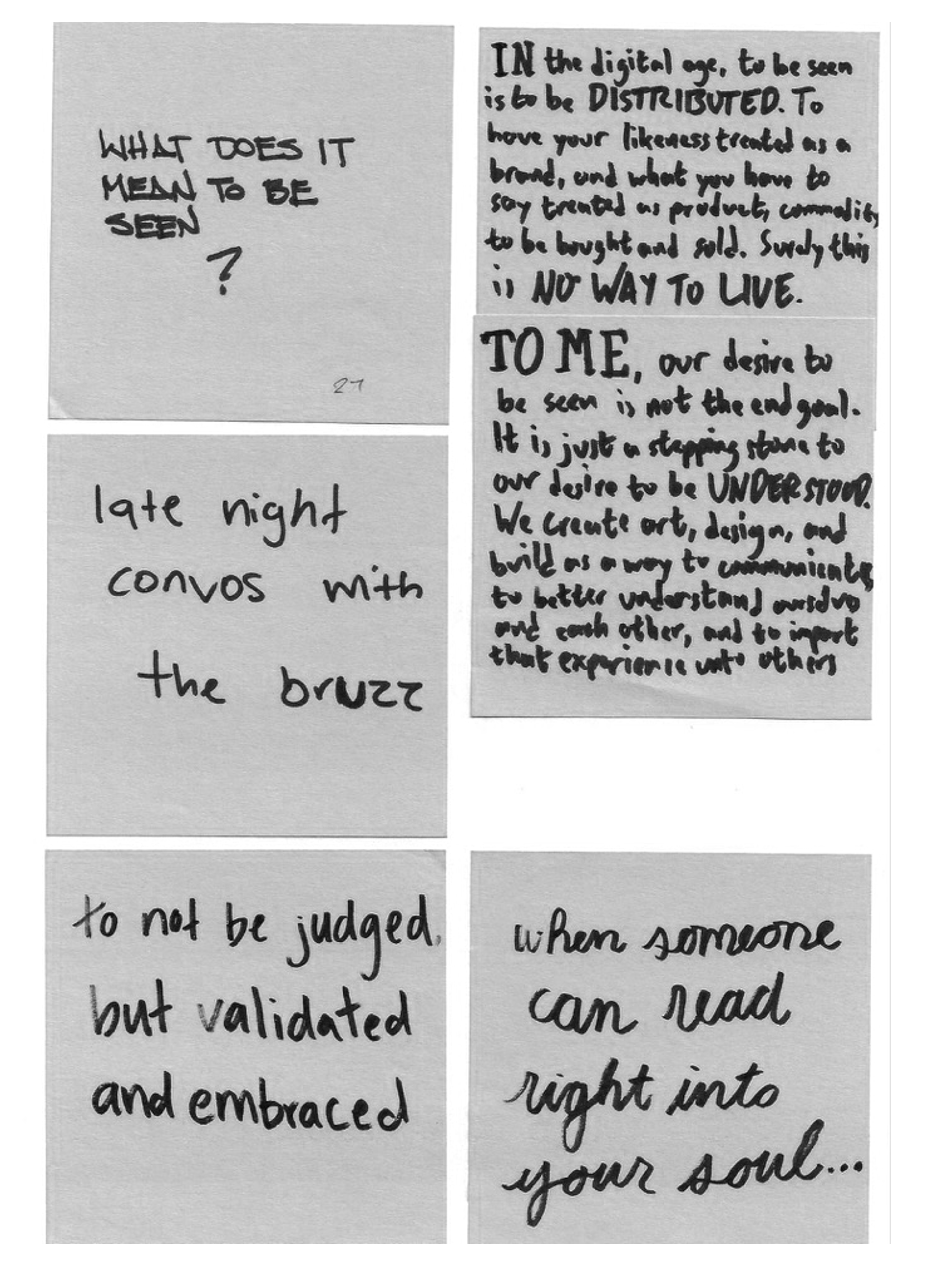 WHAT DOES IT
MEAN TO BE
SEEN
?
21
IN the digital age, to be seen
is to be DISTRIBUTED. To
have your likeness treated as a
brand, and what you have to
say treated as product, commodity
to be bought and sold. Surely this
is NO WAY TO LIVE.
TO ME, our desire to
be seen is not the end goal.
It is just a stepping stone to
our desire to be UNDERSTOOD.
We create art, design, and
build as a way to communicate,
to better understand ourselves
and each other, and to impart
that experience unto others
late night
convos with
the bruzz
to not be judged,
but validated
and embraced
when someone
can read
right into
your soul...